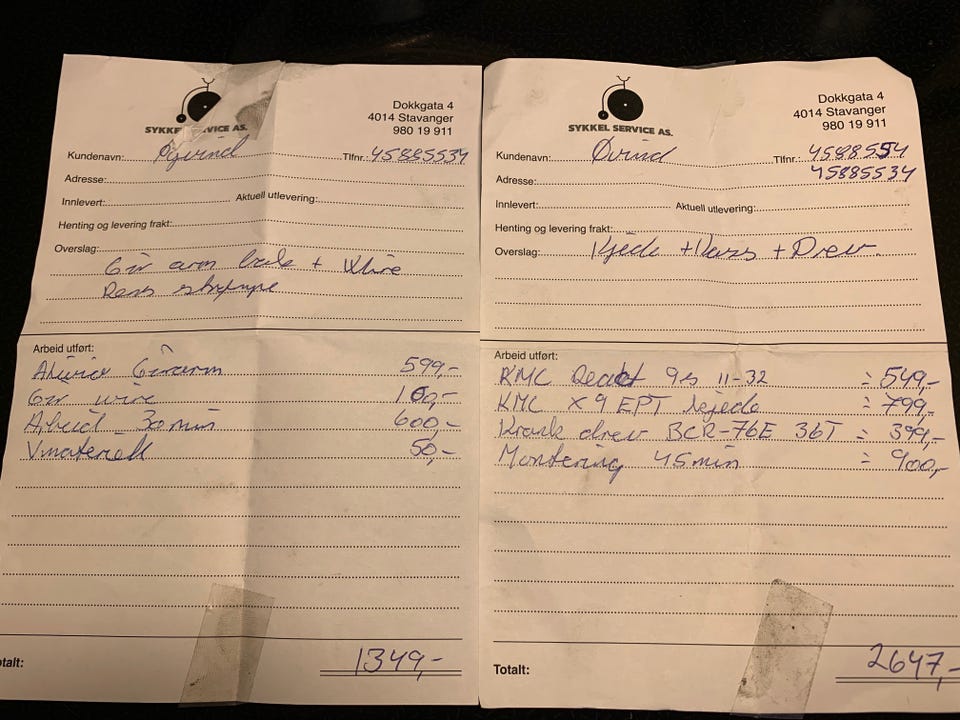 SYKKEL SERVICE AS.
Dokkgata 4
4014 Stavanger
980 19 911
Kundenavn: Øyvind Tlfnr: 45885534
Adresse:
Innlevert: Aktuell utlevering:
Henting og levering frakt:
Overslag:
Gir arm + Wire
Arbeid utført:
Girarm 599,-
Gir wire 100,-
Arbeid 30 min 600,-
Vmateriell 50,-
Totalt: 1349,-
SYKKEL SERVICE AS.
Dokkgata 4
4014 Stavanger
980 19 911
Kundenavn: Øvind Tlfnr:
45885534
Adresse:
Innlevert: Aktuell utlevering:
Henting og levering frakt:
Overslag: Kjede + + Drev
Arbeid utført:
KMC 9s 11-32 : 549,-
KMC X9 EPT kjede : 799,-
Krank drev BCR-76E 36T : 399,-
Montering 45 min : 900,-
Totalt: 2647,-